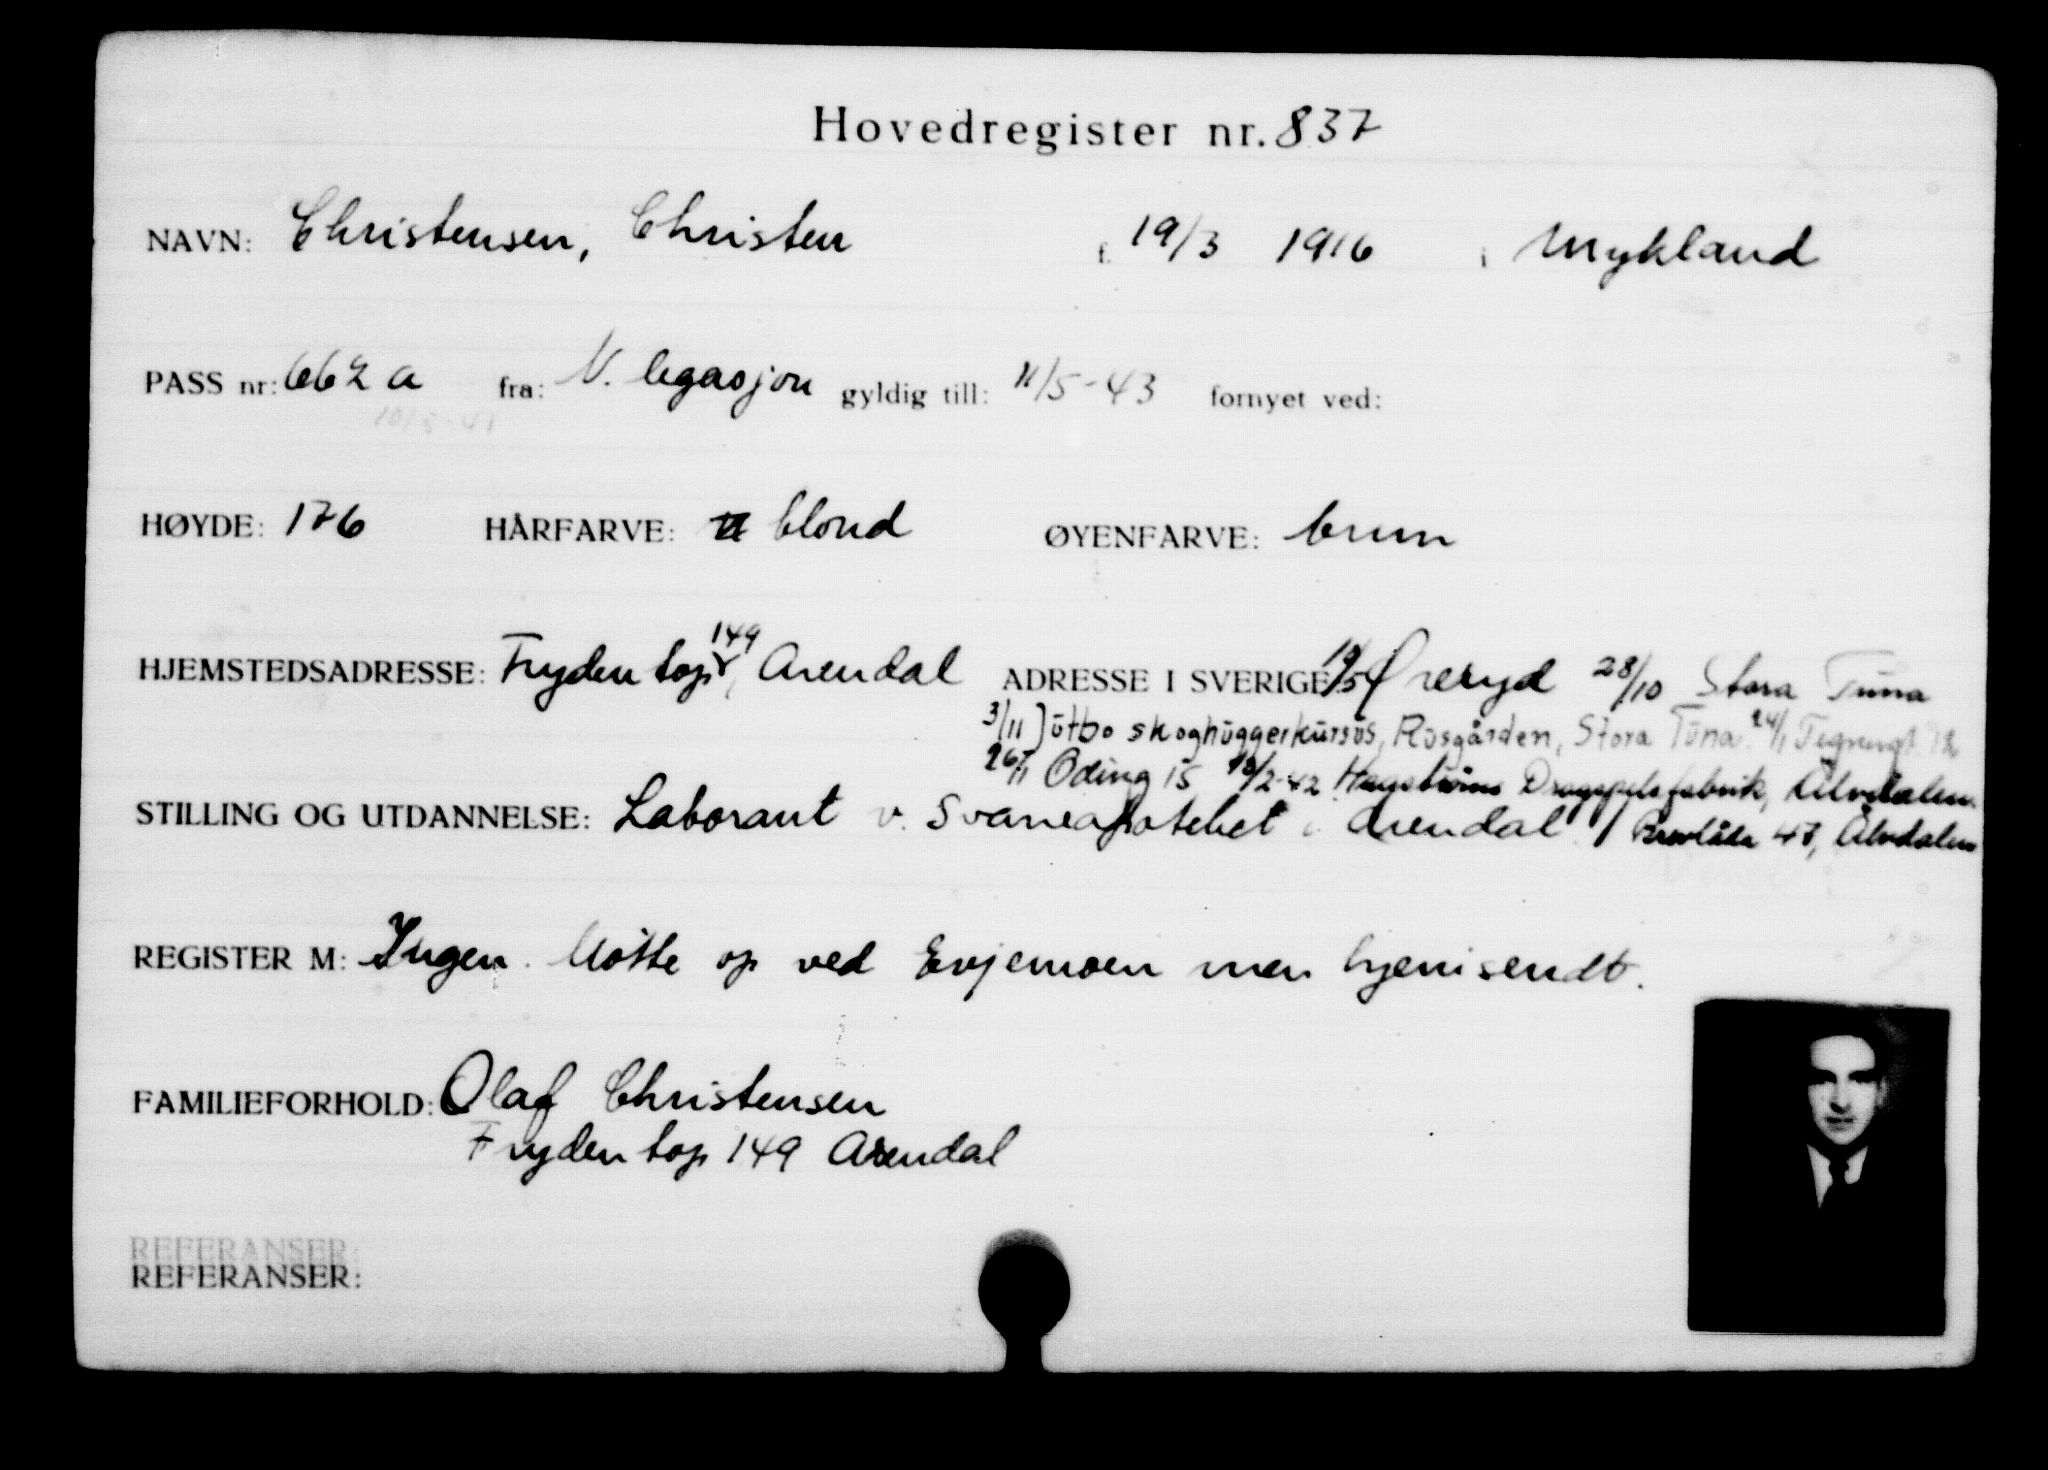 Hovedregister nr. 837
NAVN: Christensen, Christen f. 19/3 1916 i Mykland
PASS nr: 662 a fra: N. legasjon gyldig till: 11/5-43 fornyet ved:
10/5-41
HØYDE: 176 HÅRFARVE: blond ØYENFARVE: brun
HJEMSTEDSADRESSE: Frydentop 149, Arendal ADRESSE I SVERIGE: Øreryd 28/10 Stora Tuna
3/11 Jútbo skoghúggerkúrsús, Rúsgården, Stora Túna 24/1
26/11 Öding 15 Hagströms Dragspelsfabrik, Älvdalen
STILLING OG UTDANNELSE: Laborant v. Svaneapoteket i Arendal / Brevlåda 47, Älvdalen
REGISTER M: Ingen. Møtte op ved Evjemoen men hjemsendt.
FAMILIEFORHOLD: Olaf Christensen
Frydentop 149 Arendal
REFERANSER:
REFERANSER: